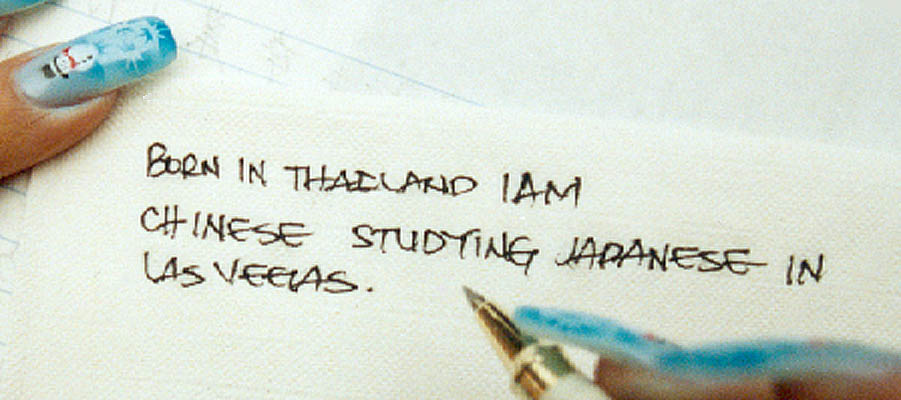 BORN IN THAILAND I AM
CHINESE STUDYING JAPANESE IN
LAS VEGAS.